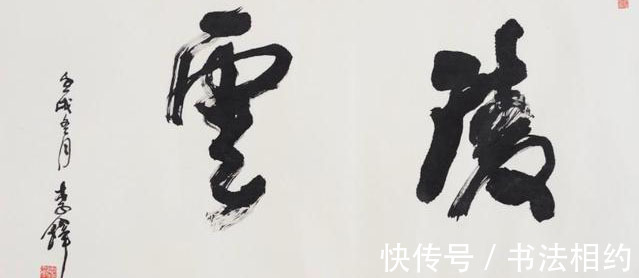 陵雲
壬戌五月 李鐸
快传号 / 书法相约